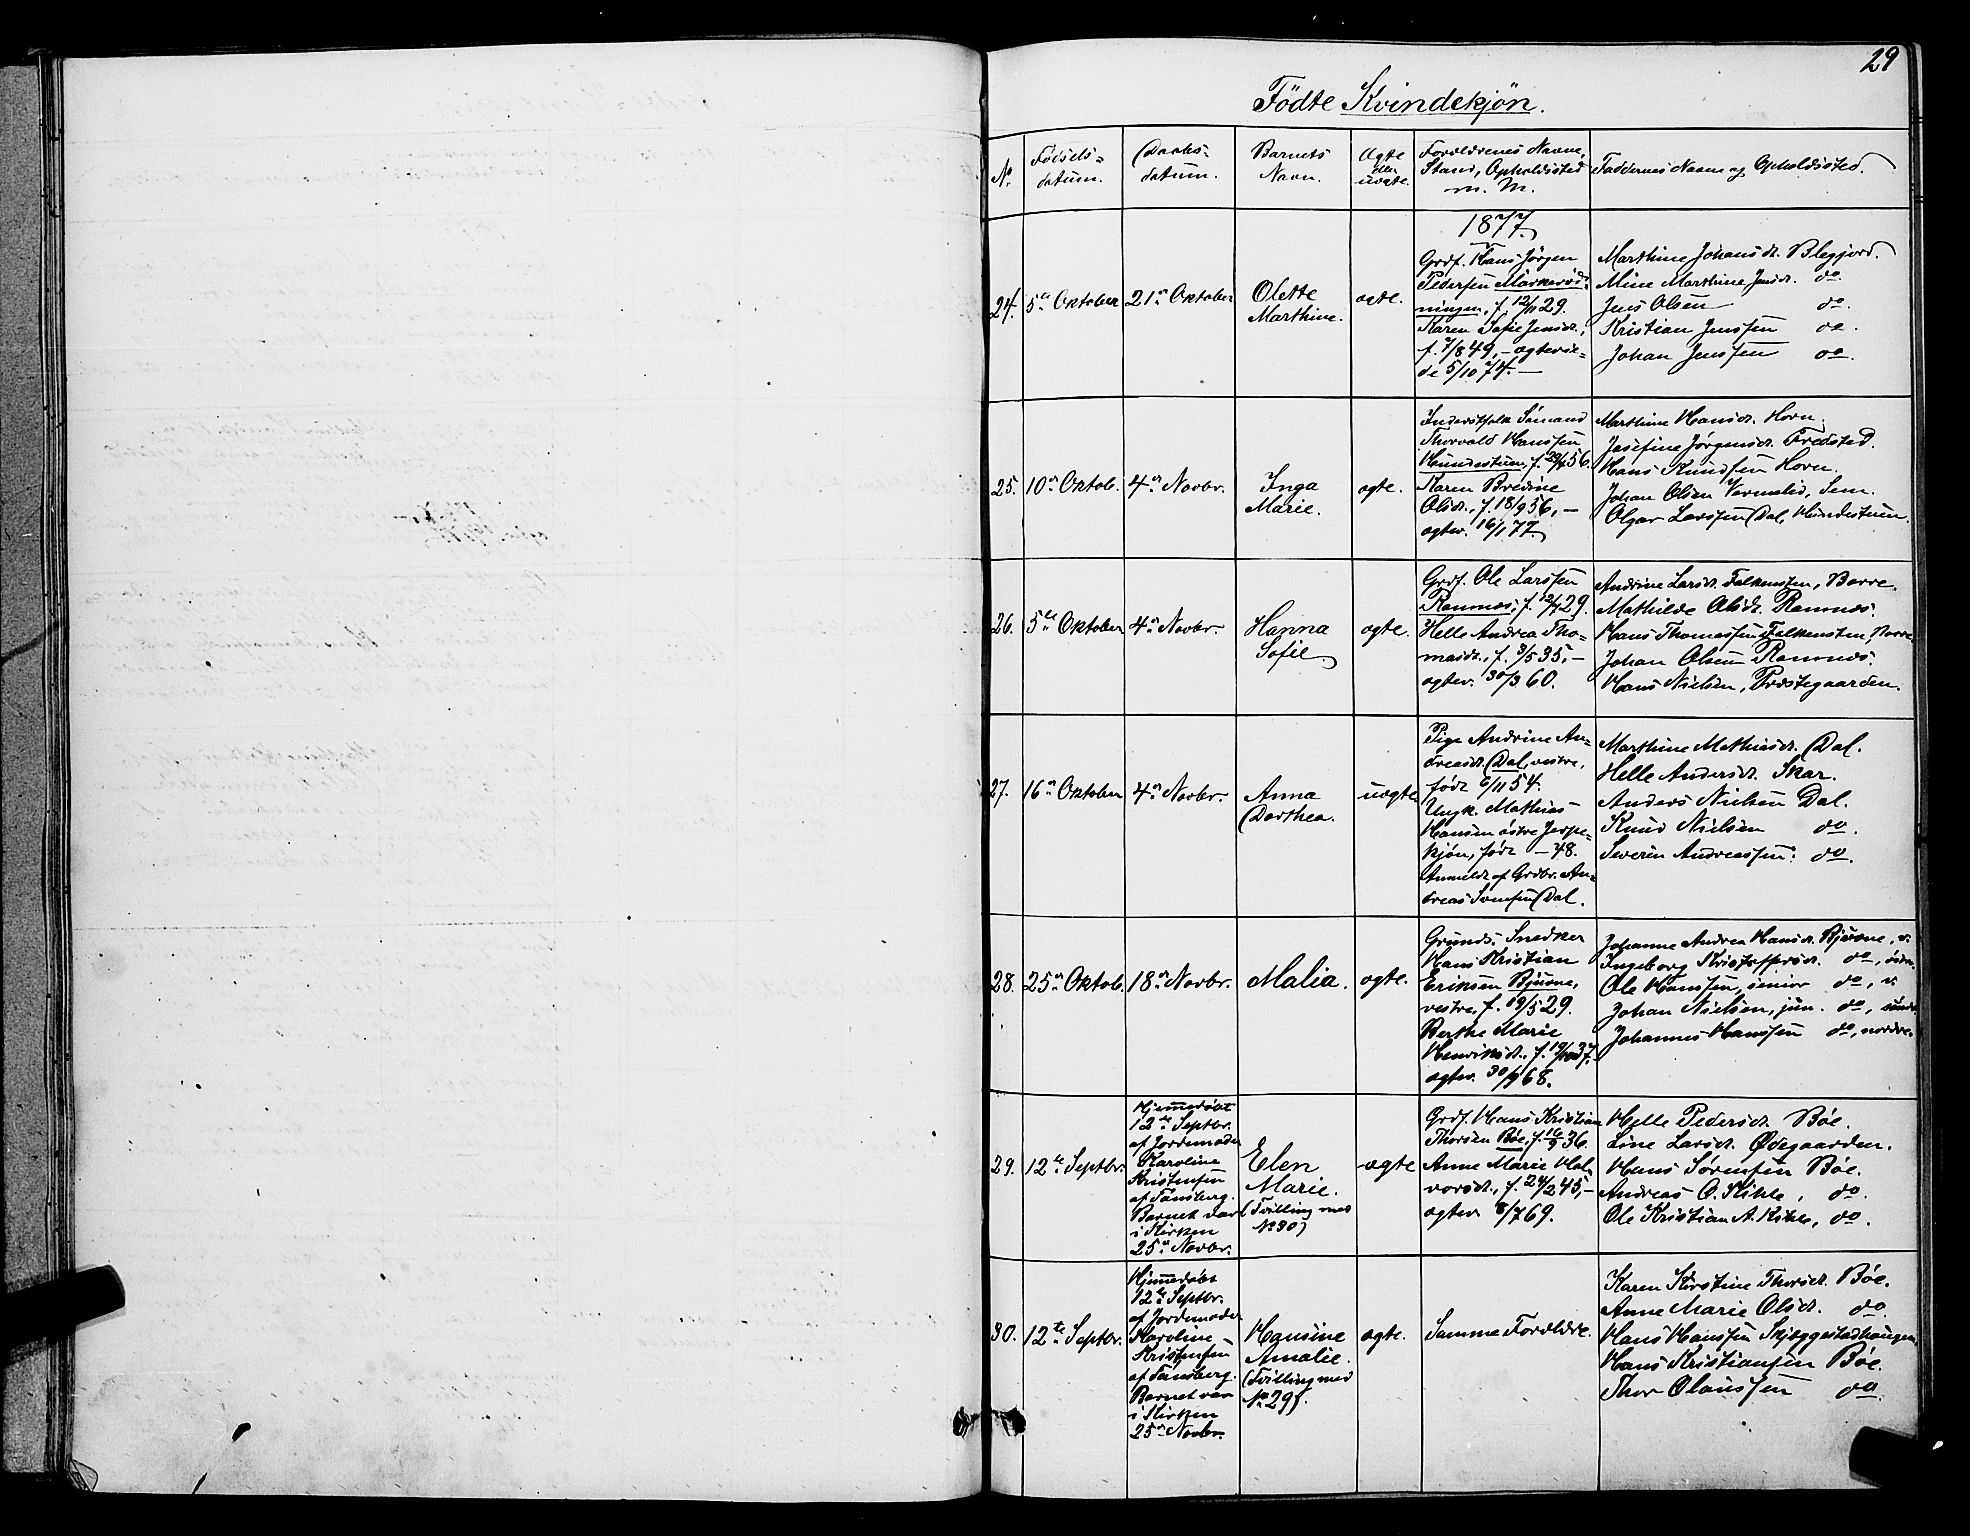 29
Födte Kvindekjön.
No.
Födsels-
datum.
Daabs-
datum.
Barnets
Navn.
Ægte
eller
uægte.
Forældrenes Navne,
Stand, Opholdssted
m. M.
Faddernes Navne og Opholdssted.
1877.
24.
5te Oktober
21de Oktober
Olette
Marthine.
ægte.
Grdf. Hans Jörgen
Pedersen
ningen, f. 12/11 29.
Karen Sofie Jensdt.,
f. 7/8 49, – ægtevie-
de 5/10 74. –
Marthine Johansdt.
Mine Marthine Jensdt. do
Jens Olsen do.
Kristian Jenssen do.
Johan Jenssen do.
25.
10de Oktob.
4de Novbr.
Inga
Marie.
ægte.
Inderstfolk Sömand
Thorvald Hanssen
Hundestuen, f. 56.
Karen Bredine
Olsdt., f. 18/9 56, –
ægtev. 16/1 77.
Marthine Hansdt. Horn.
Josefine Jörgensdt. Fredsted.
Hans Knudsen Horn.
Johan Olsen Vermelid, Sem.
Olgar Larssen Dal, Hundestuen.
26.
5te Oktober
4de Novbr.
Hanna
Sofie.
ægte.
Grdf. Ole Larssen
Ramnæs, f. 29.
Helle Andrea Tho-
masdt., f. 3/5 35, –
ægtev. 30/3 60.
Andrine Larsdt. Falkensten, Borre.
Mathilde Olsdt. Ramnæs.
Hans Thomassen Falkensten, Borre
Johan Olsen Ramnæs.
Hans Nielsen, Præstegaarden.
27.
16de Oktober
4de Novbr.
Anna
Dorthea.
uægte
Pige Andrine An-
dreasdt. Dal, vestre,
född 6/11 54.
Ungk. Mathias
Hansen östre Jerpe-
kjön, född – 48.
Anmeldt af Grdbr. An-
dreas Svensen Dal.
Marthine Mathiasdt. Dal.
Helle Andersdt. Skar.
Anders Nielsen Dal.
Knud Nielsen do.
Severin Andreassen. do.
28.
25de Oktob.
18de Novbr.
Malia.
ægte.
Grunds. Snedker
Hans Kristian
Eriksen Bjuone,
vestre, f. 19/5 29.
Berthe Marie
Henriksdt., f. 19/10 37,
ægtev. 30/9 68.
Johanne Andrea Hansdt. Bjuone, v.
Ingeborg Kristoffersdt. do, östre.
Ole Hanssen, senior do, v.
Johan Nielsen, jun. do, söndre
Johannes Hanssen do, nordre.
29.
12te Septbr.
Hjemmedöbt
12te Septbr.
af Jordemoder
Karoline
Kristensen
af Tönsberg.
Barnet var
i Kirken
25de Novbr.
Elen
Marie.
(Tvilling med
No 30)
ægte
Grdf. Hans Kristian
Thorsen Böe, f. 16/9 36.
Anne Marie Hal-
vorsdt., f. 24/2 45, –
ægtev. 8/7 69.
Helle Pedersdt. Böe.
Line Larsdt. Ödegaarden.
Hans Sörensen Böe.
Andreas O. Kihle, do.
Ole Kristian A. Kihle, do.
30.
12te Septbr.
Hjemmedöbt
12te Septbr.
af Jordemoder
Karoline
Kristensen
af Tönsberg.
Barnet var
i Kirken
25de Novbr.
Hansine
Amalie.
(Tvilling med
No 29).
ægte.
Samme Forældre.
Karen Kirstine Thorsdt. Böe.
Anne Marie Olsdt. do
Hans Hanssen Skjæggestadhaugen
Hans Kristiansen Böe.
Thor Olaussen do.